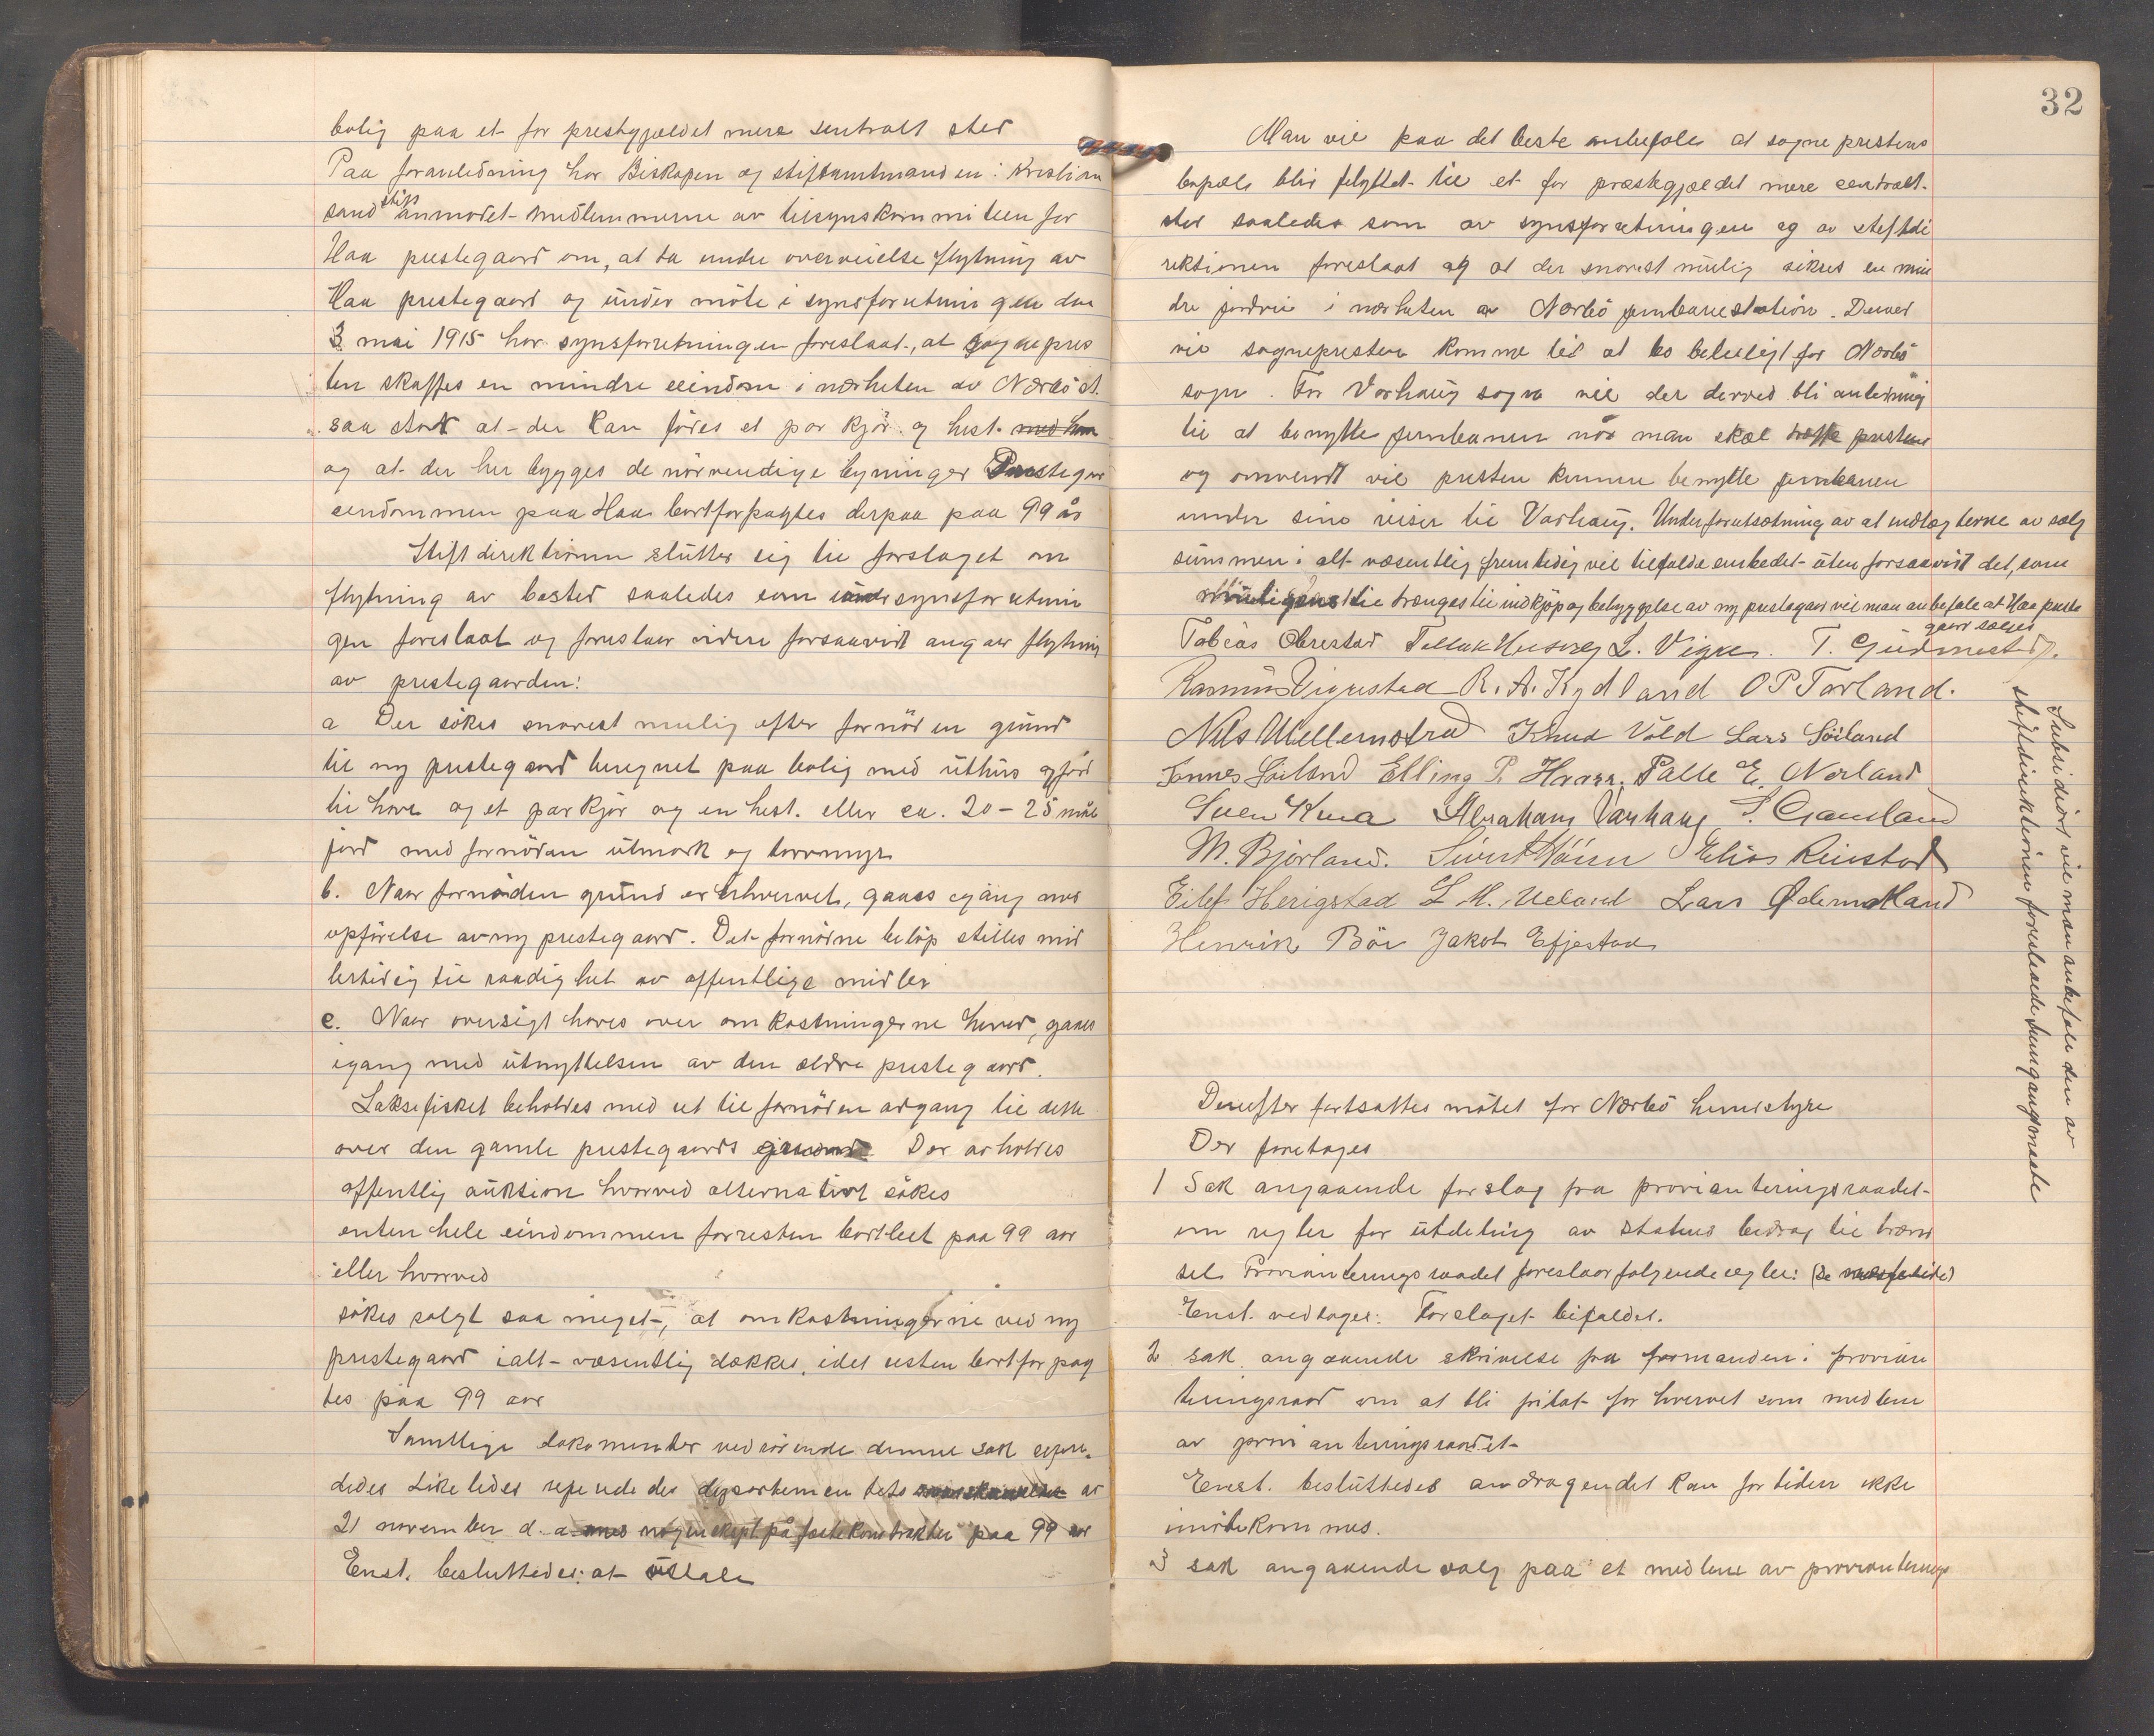 bolig paa et for prestegjældet mere sentralt sted
Paa foranledning har Biskopen og stiftamtmanden i Kristian
sand stift anmodet medlemmerne av tilsynskommiteen for
Haa prestegaard om, at ta under overveielse flytning av
Haa prestegaard og under møte i synsforretningen den
3 mai 1915 har synsforretningen foreslaat, at sognepres
ten skaffes en mindre eiendom i nærheten av Nærbö st.
saa stor at der kan föres et par kjör og hest
og at der her bygges de nörvendige bygninger Prestegar
eendommen paa Haa bortforpagtes derpaa paa 99 år
Stiftdirektionen slutter sig til forslaget om
flytning av bosted saaledes som synsforretnin
gen foreslaat og foreslaar videre forsaavidt angaar flytning
av prestegaarden:
a Der sökes snarest mulig efter fornöden grund
til ny prestegaard beregnet paa bolig med uthus og jord
til have og et par kjör og en hest. eller ca. 20 - 25 maal
jord med fornöden utmark og torvmyr
b. Naar fornöden grund er erhvervet, gaaes igang med
opförelse av ny prestegaard. Det fornödne belöp stilles mid
lertidig til raadighet av offentlige midler
c. Naar oversigt haves over omkostningerne herved, gaaes
igang med utnyttelsen av den ældre prestegaard.
Laksefisket beholdes med ret til fornöden adgang til dette
over den gamle prestegaards grund. Der avholdes
offentlig auktion hvorved alternativt sökes
enten hele eindommen forresten bortleet paa 99 aar
eller hvorved
sökes solgt saa meget, at omkostningerne ved ny
prestegaard ialt væsentlig dækkes, idet resten bortforpag
tes paa 99 aar
Samtlige dokumenter vedrörende denne sak refere
dedes Likeledes refereredes departementets av
21 november d.a. paa 99 aar
Enst. besluttedes: at uttale
32
Man vil paa det beste anbefale at sogneprestens
bopæl blir flyttet til et for præstegjældet mere centralt
sted saaledes som av synsforretningen og av stiftdi
rektionen foreslaat og at der snarest mulig sikres en min
dre jordvei i nærheten av Nærbö jernbanestation. Derved
vil sognepresten komme til at bo beleiligt for Nærbö
sogn. For Varhaug sogn vil der derved bli anledning
til at benytte jernbanen når man skal træffe presten
og omvendt vil presten kunne benytte jernbanen
under sine reiser til Varhaug. Under forutsætning av at indtægterne av salg
summen i alt væsentlig fremtidig vil tilfalde embedet uten forsaavidt det, som
til trænges til indkjöp og bebyggelse av ny prestegaar vil man anbefale at Haa preste
gaard sælges
Tobias Obrestad L. Vigre. T. Gudmestad.
Rasmus Vigrestad R. A. Kydland O P Torland.
Nils Mellemstrad Knud Vold Lars Söiland
Tønnes Söiland Elling P. Haarr. Palle E. Nærland
Sven Kvia Abraham Varhaug S. Gausland
M. Bjorland. Sivert Haarr Elias Reistad
Eilef Herigstad L M. Ueland Lars Ødemotland
Henrik Böe Jakob Efjestad
Subsidiært vil man anbefale den av
stiftdirektionen foreslaaede fremgangsmaate
Derefter fortsattes mötet for Nærbö herredstyre
Der foretages
1 Sak angaaende forslag fra provianteringsraadet
om regler for utdeling av statens bidrag til brænd
sel. Provianteringsraadet foreslaar folgende regler: (se
Enst. vedtages: Forslaget bifaldet.
2 sak angaaende skrivelse fra formanden i provian
teringsraad om at bli fritat for hvervet som medlem
av provianteringsraadet
Enst. besluttedes andragendet kan for tiden ikke
imötekommes.
3 sak angaaende valg paa et medlem av provianterings